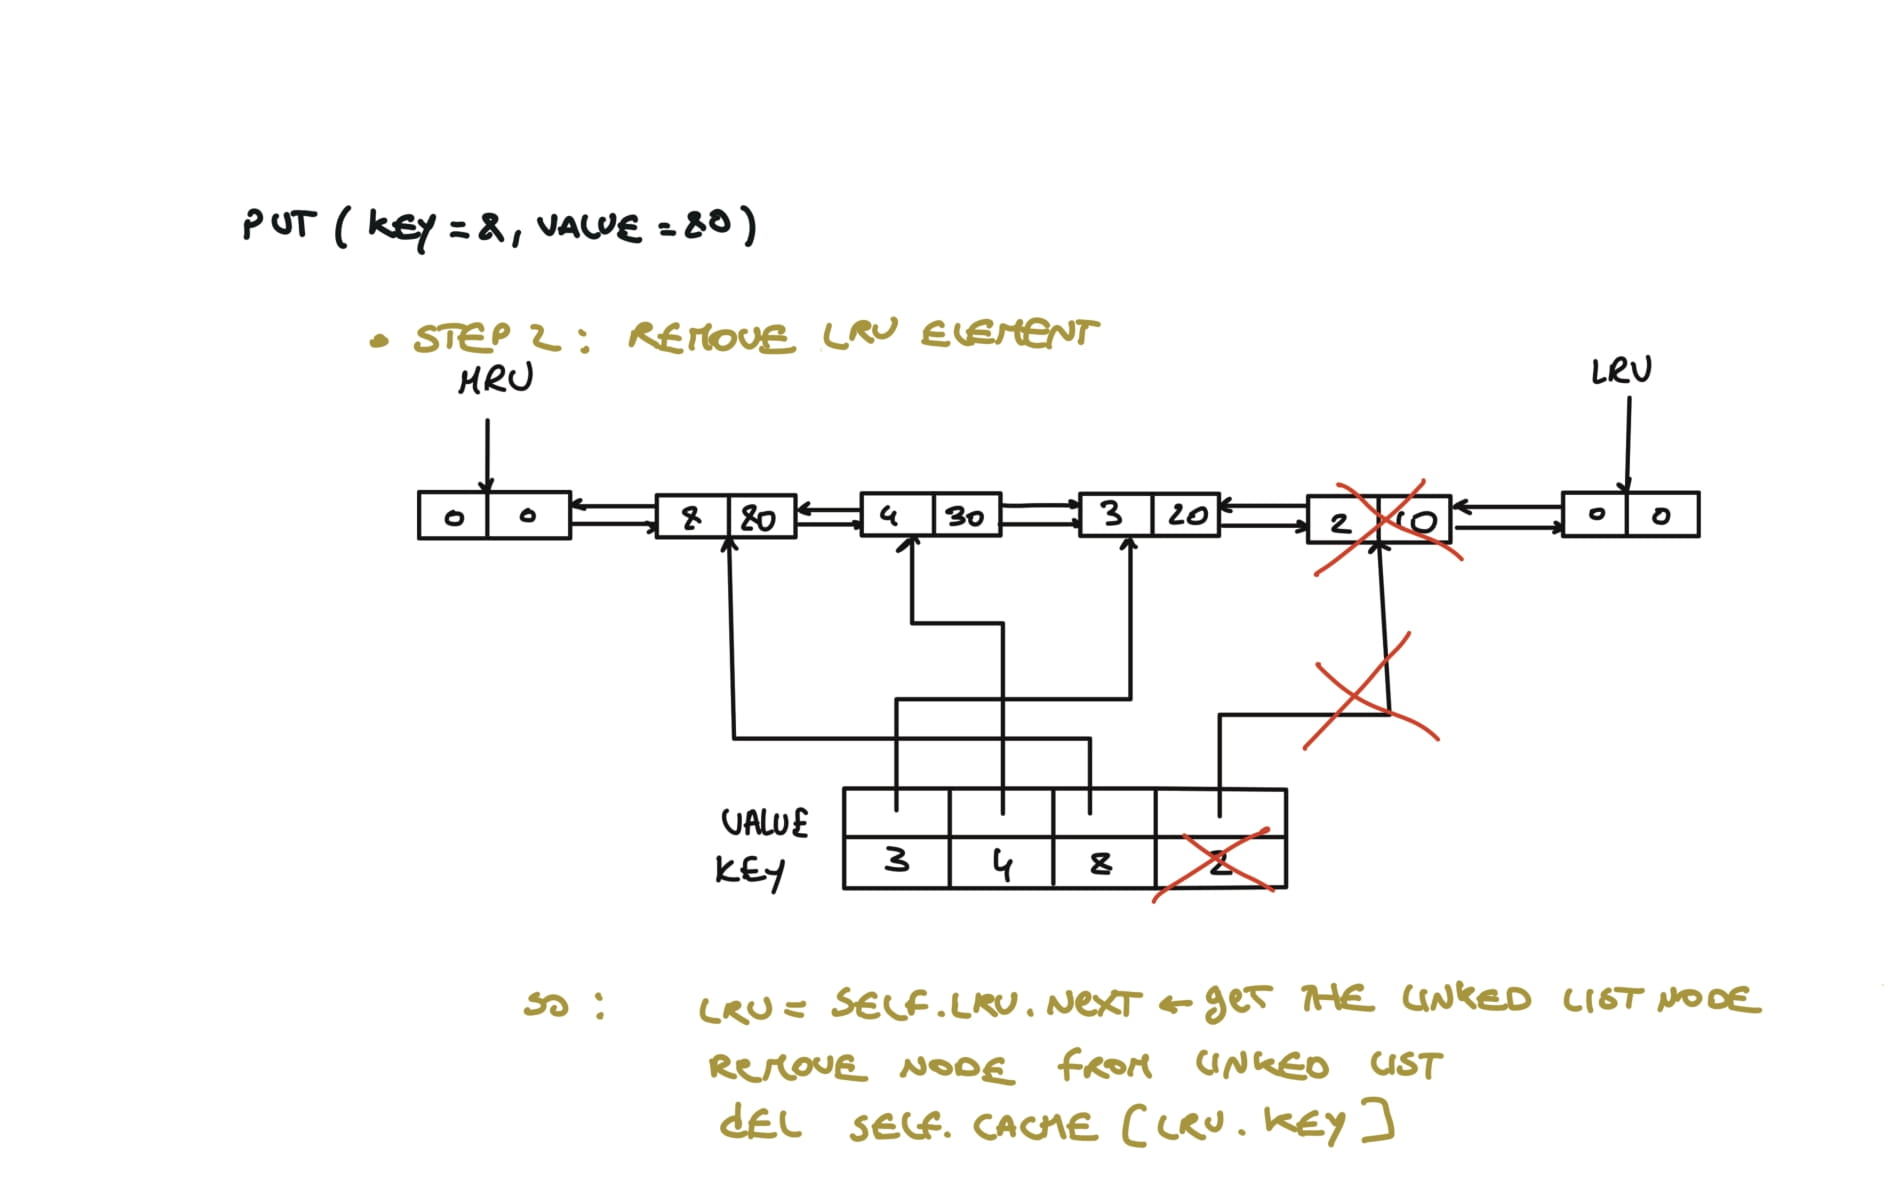 PUT ( KEY = 8, VALUE = 80 )
• STEP 2 : REMOVE LRU ELEMENT
MRU
LRU
0 0 8 80 4 30 3 20 2 10 0 0
VALUE
KEY 3 4 8 2
SO : LRU = SELF.LRU.NEXT ← GET THE LINKED LIST NODE
REMOVE NODE FROM LINKED LIST
DEL SELF.CACHE [LRU.KEY]